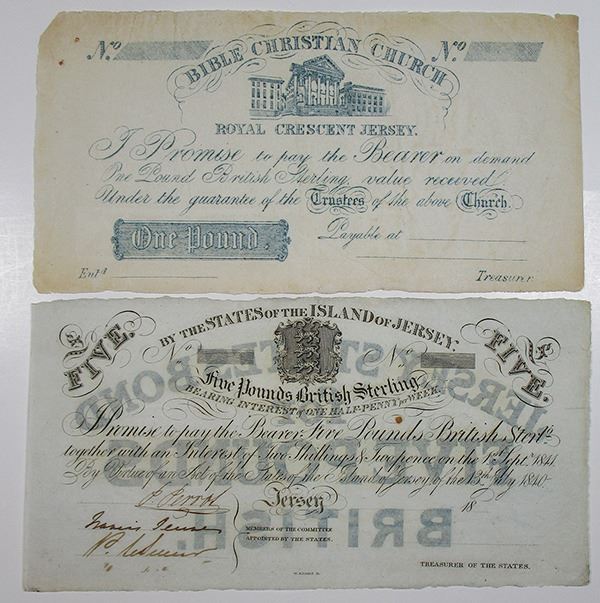 No. No.
BIBLE CHRISTIAN CHURCH
ROYAL CRESCENT JERSEY.
I Promise to pay the Bearer on demand
One Pound British Sterling, value received
Under the guarantee of the Trustees of the above Church.
One Pound. Payable at
Entd Treasurer
BY THE STATES OF THE ISLAND OF JERSEY.
£5 FIVE. £5 FIVE.
No No
Five Pounds British Sterling
BEARING INTEREST of ONE HALF-PENNY per WEEK.
JERSEY STATES BOND
I Promise to pay the Bearer Five Pounds British Sterlg.
together with an Interest of Two Shillings & Two pence on the 1st Septr. 1841.
By Virtue of an Act of the States of the Island of Jersey of the 13th July 1840
Jersey 18
MEMBERS OF THE COMMITTEE
APPOINTED BY THE STATES.
BRITISH.
TREASURER OF THE STATES.